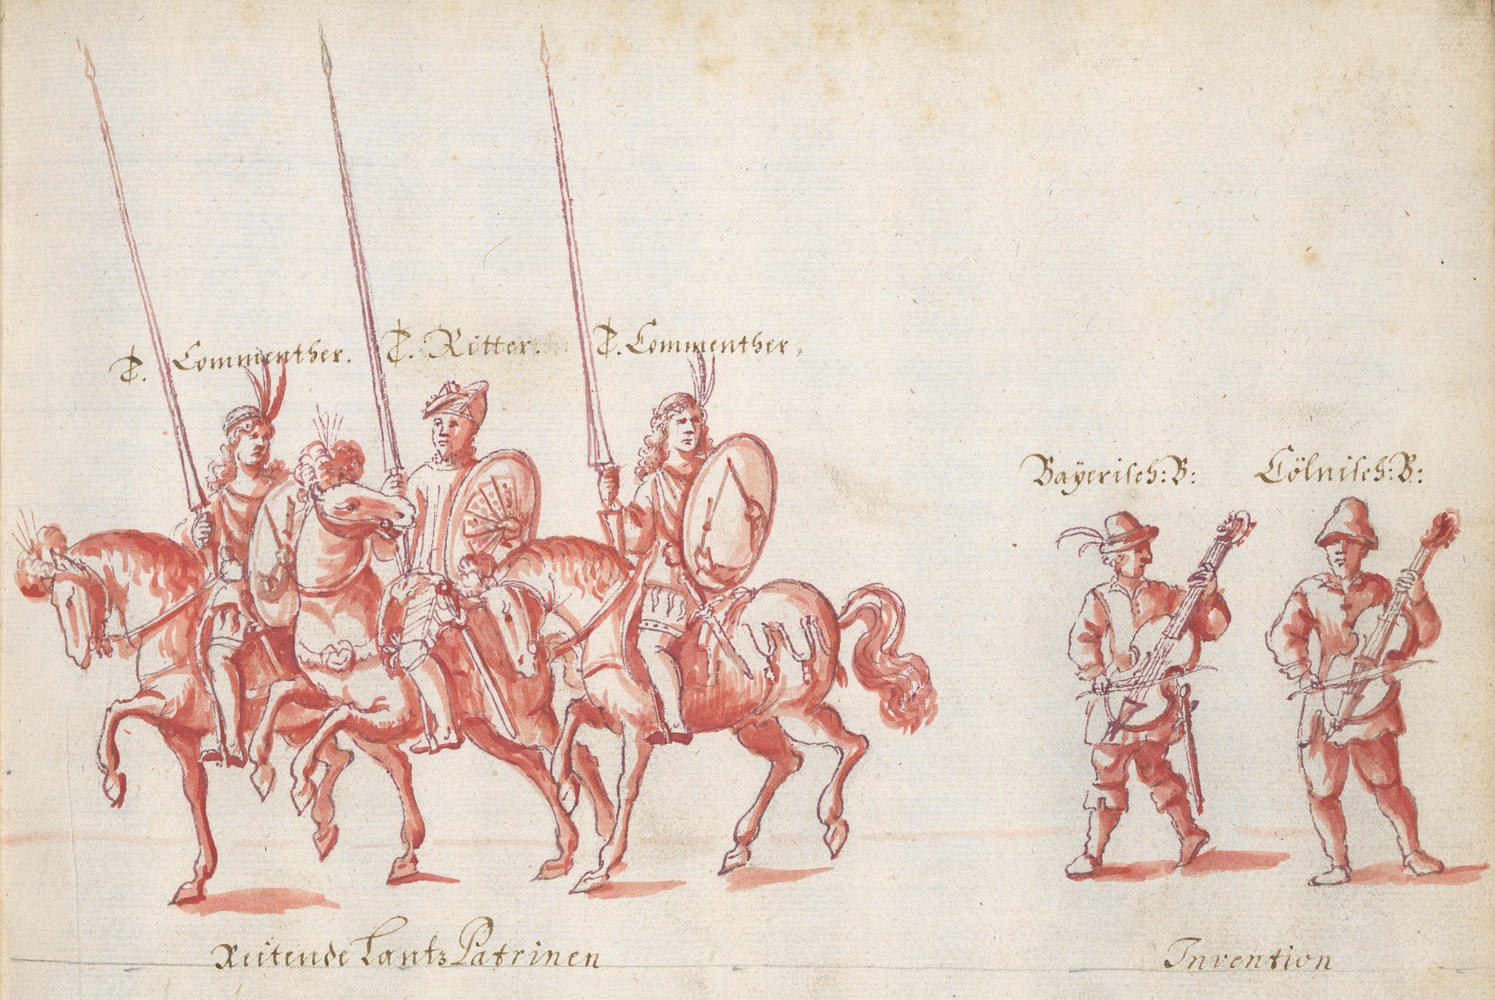 T. Commenther.
T. Ritter.
T. Commenther,
Bayerisch: B:
Cölnisch: B:
Reitende Lantz Patrinen
Invention